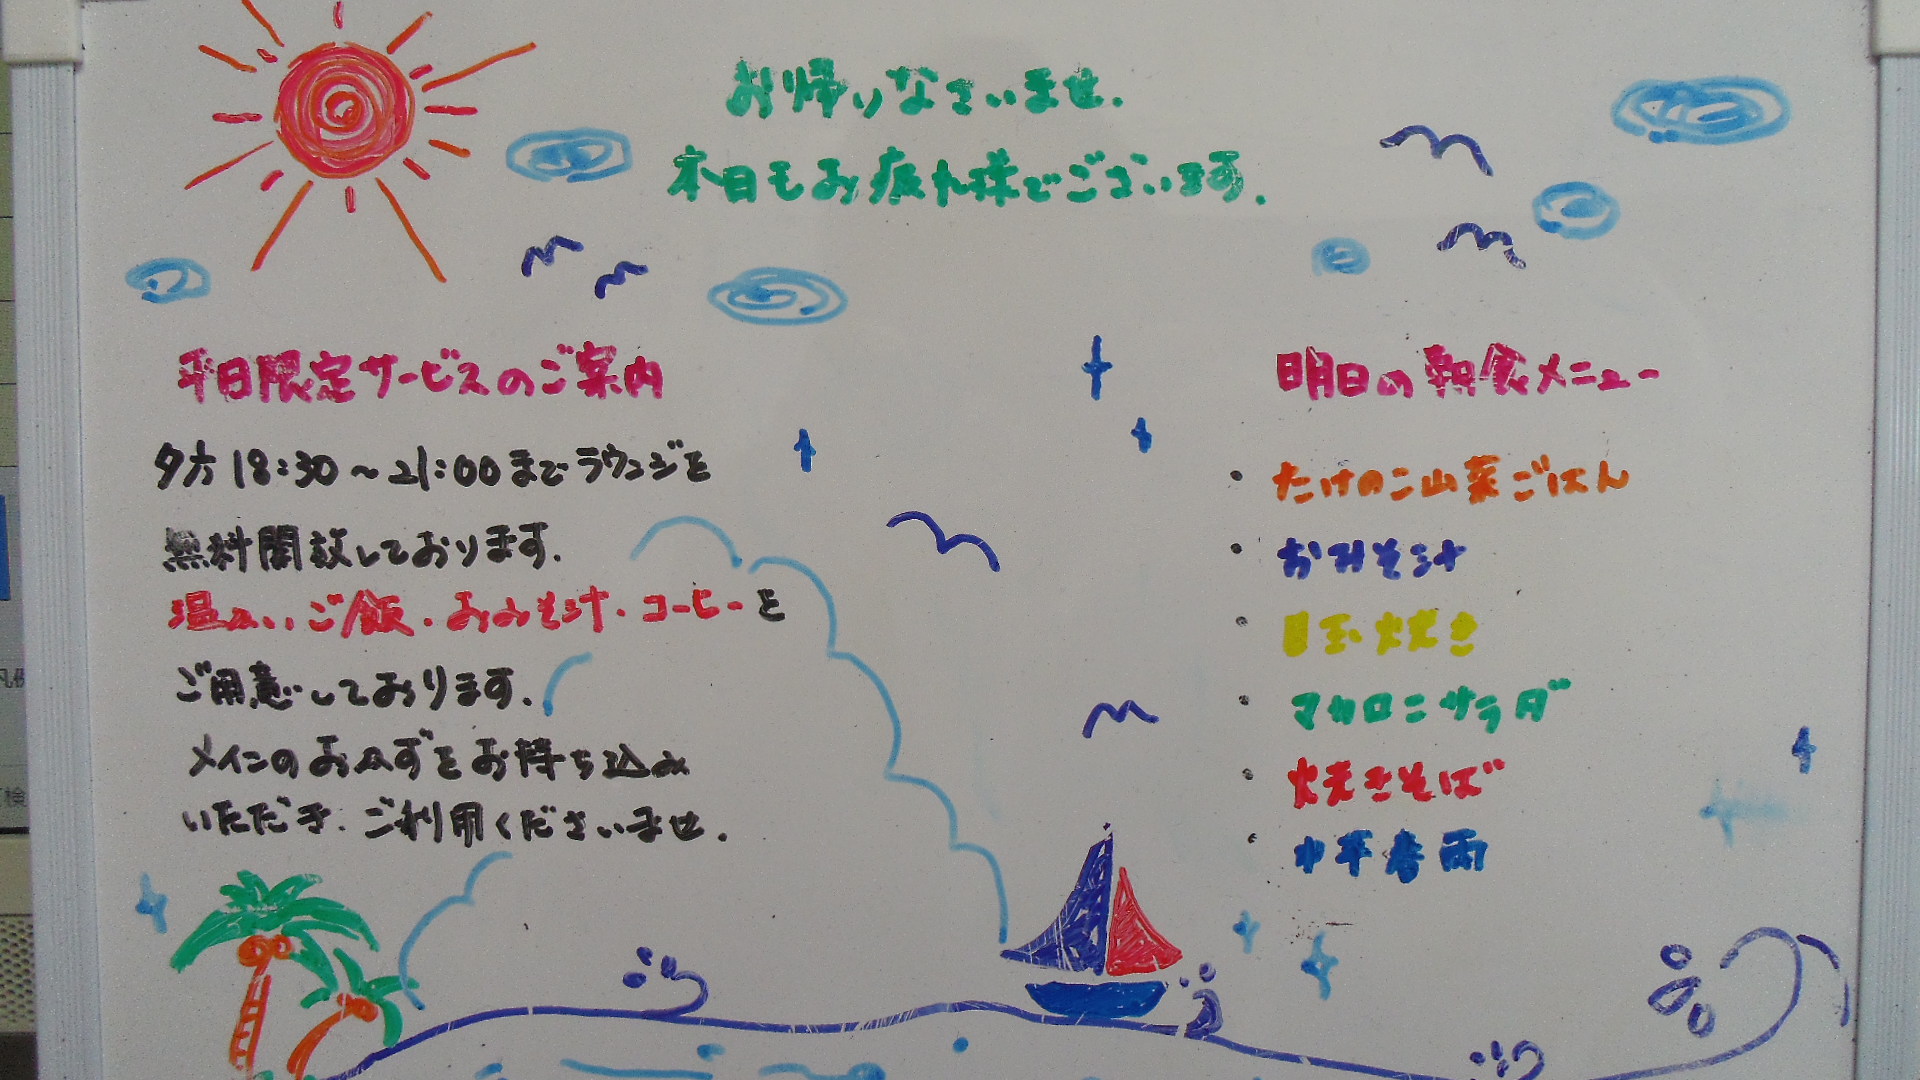 お帰りなさいませ.
本日もお疲れ様でございます.
平日限定サービスのご案内
夕方18:30～21:00までラウンジを
無料開放しております.
温かい、ご飯・おみそ汁・コーヒーを
ご用意しております.
メインのおかずをお持ち込み
いただき、ご利用くださいませ.
明日の朝食メニュー
・たけのこ山菜ごはん
・おみそ汁
・目玉焼き
・マカロニサラダ
・焼きそば
・中華春雨